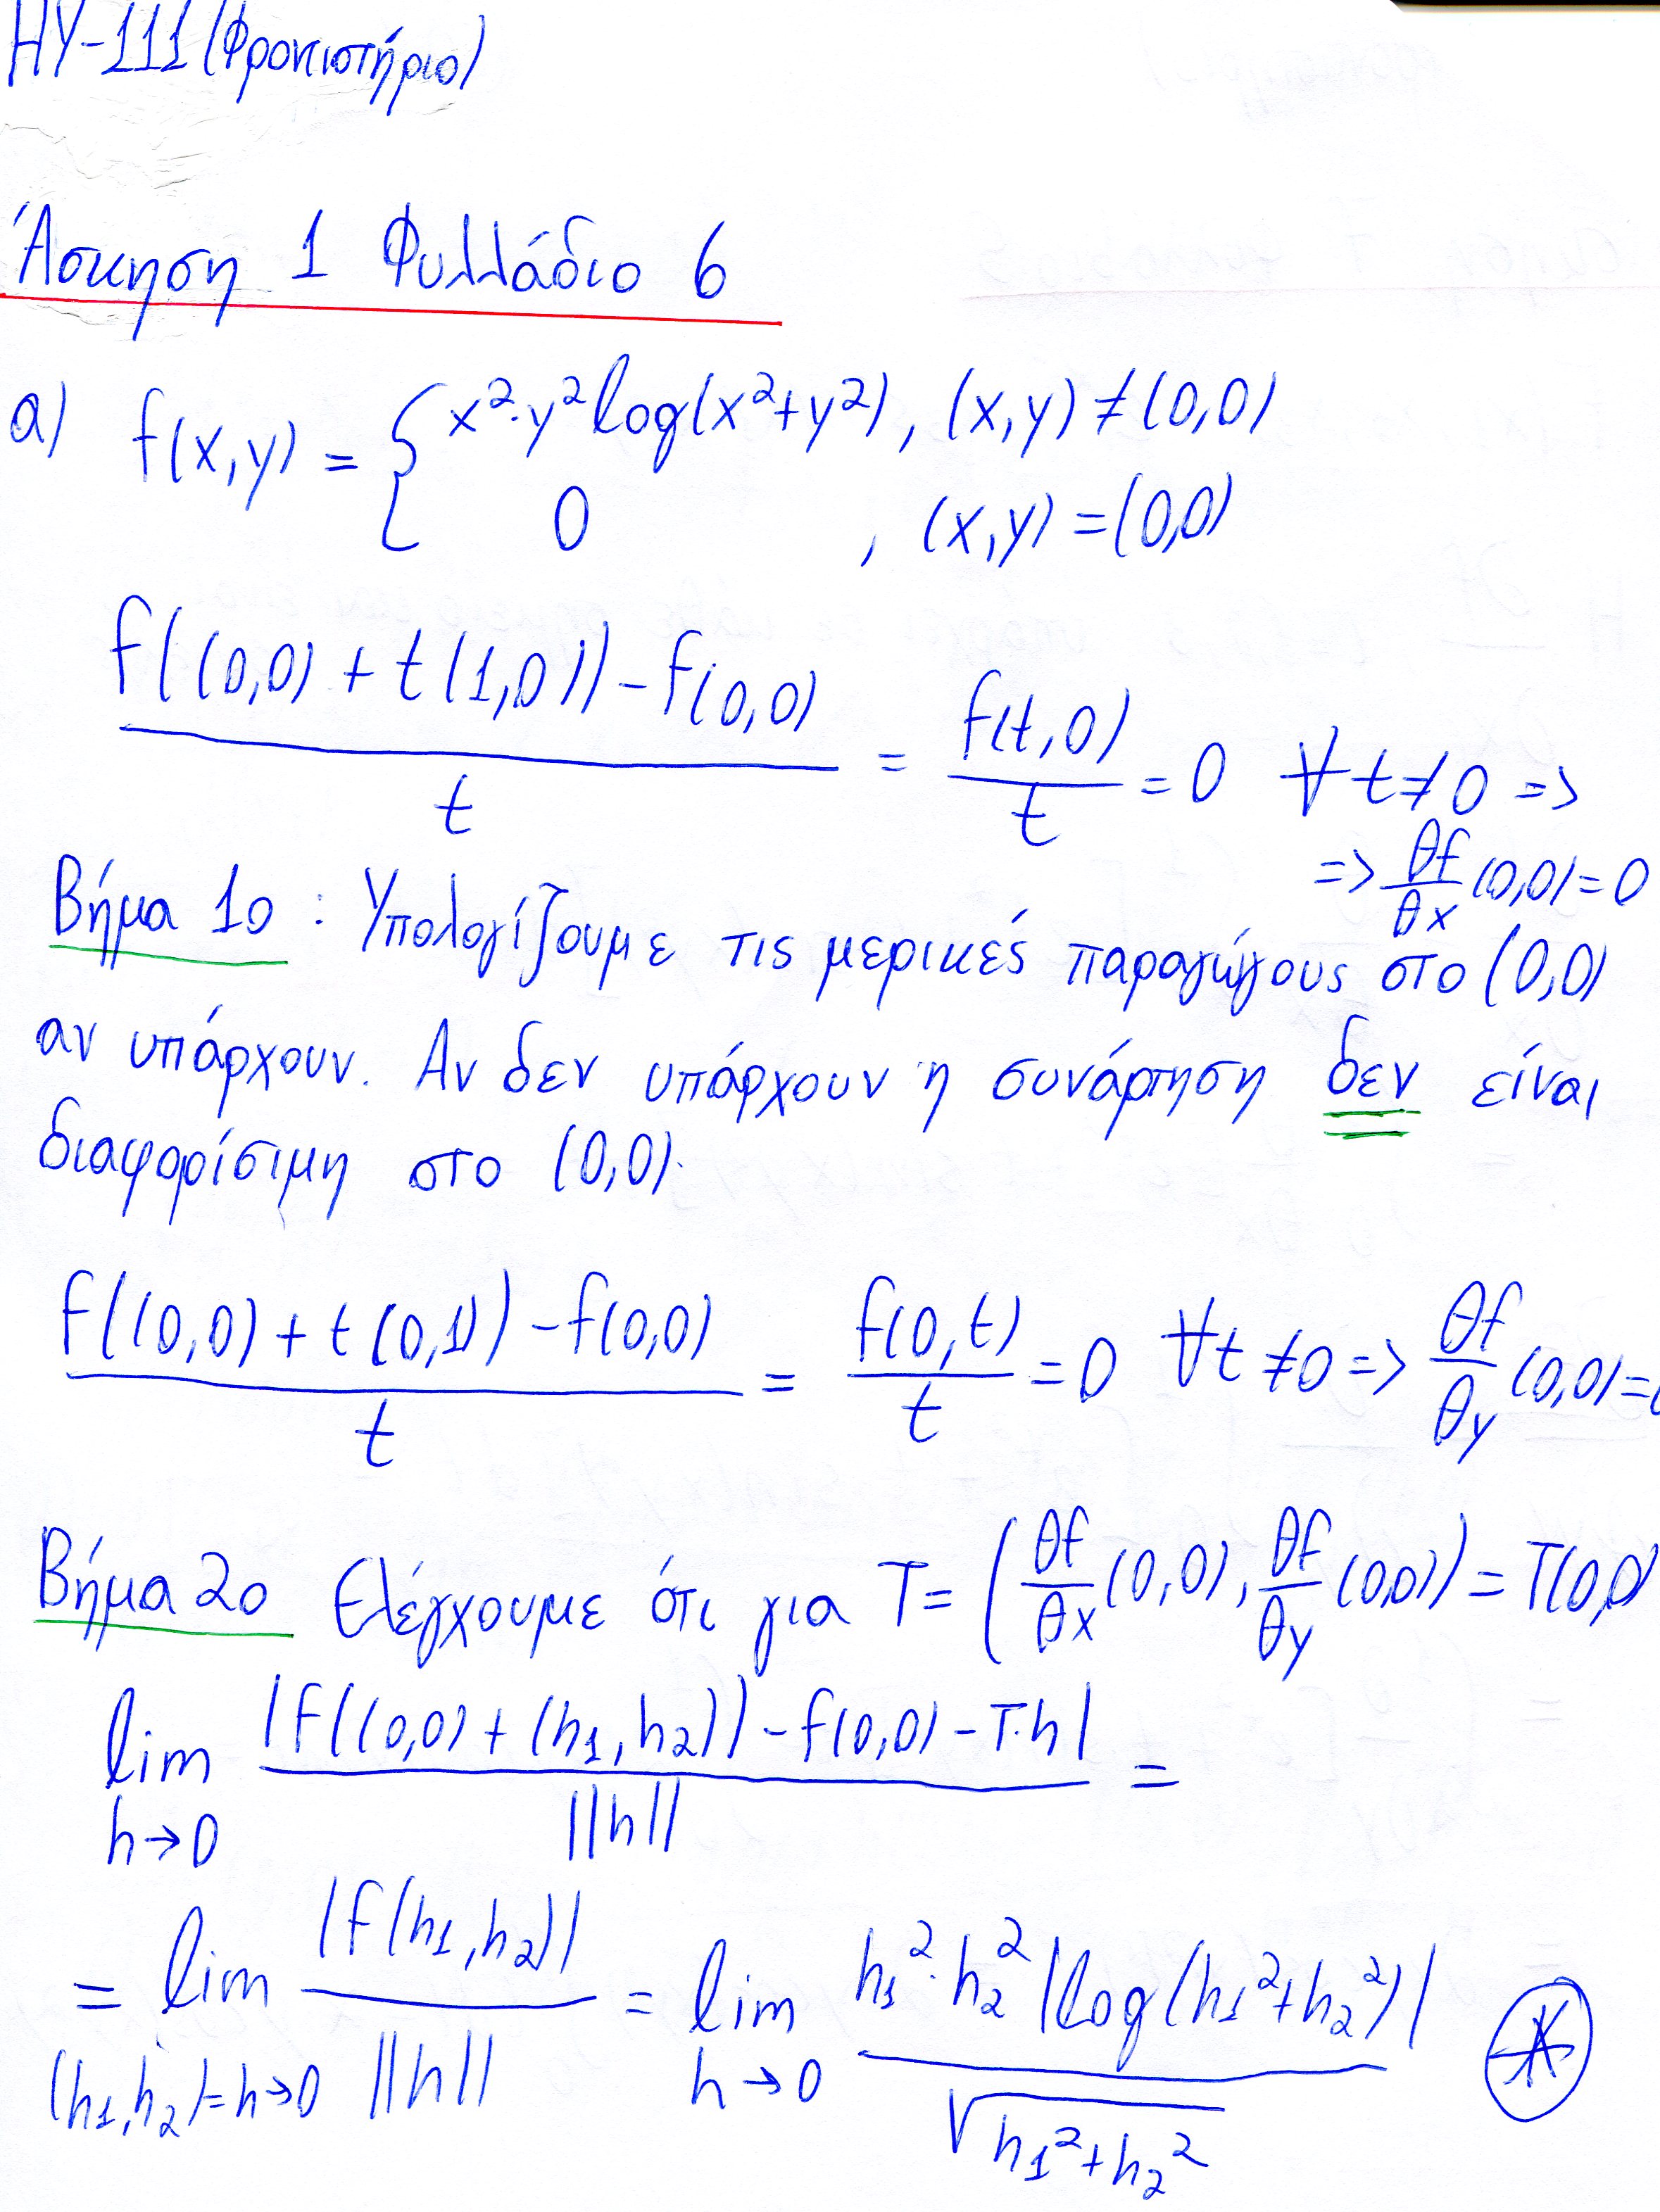 ΗΥ-111 (Φροντιστήριο)
Άσκηση 1 Φυλλάδιο 6
α) f(x,y) = { x²·y² log(x²+y²), (x,y) ≠ (0,0)
0 , (x,y) = (0,0)
f((0,0) + t(1,0)) - f(0,0) / t = f(t,0) / t = 0 ∀ t ≠ 0 =>
=> θf/θx (0,0) = 0
Βήμα 1ο : Υπολογίζουμε τις μερικές παραγώγους στο (0,0)
αν υπάρχουν. Αν δεν υπάρχουν η συνάρτηση δεν είναι
διαφορίσιμη στο (0,0).
f((0,0) + t(0,1)) - f(0,0) / t = f(0,t) / t = 0 ∀t ≠ 0 => θf/θy (0,0) =
Βήμα 2ο Ελέγχουμε ότι για T = (θf/θx (0,0), θf/θy (0,0)) = T(0,0)
lim h→0 |f((0,0) + (h₁,h₂)) - f(0,0) - T·h| / ||h|| =
= lim (h₁,h₂)=h→0 |f(h₁,h₂)| / ||h|| = lim h→0 h₁²·h₂² |log(h₁²+h₂²)| / √h₁²+h₂² ⊛